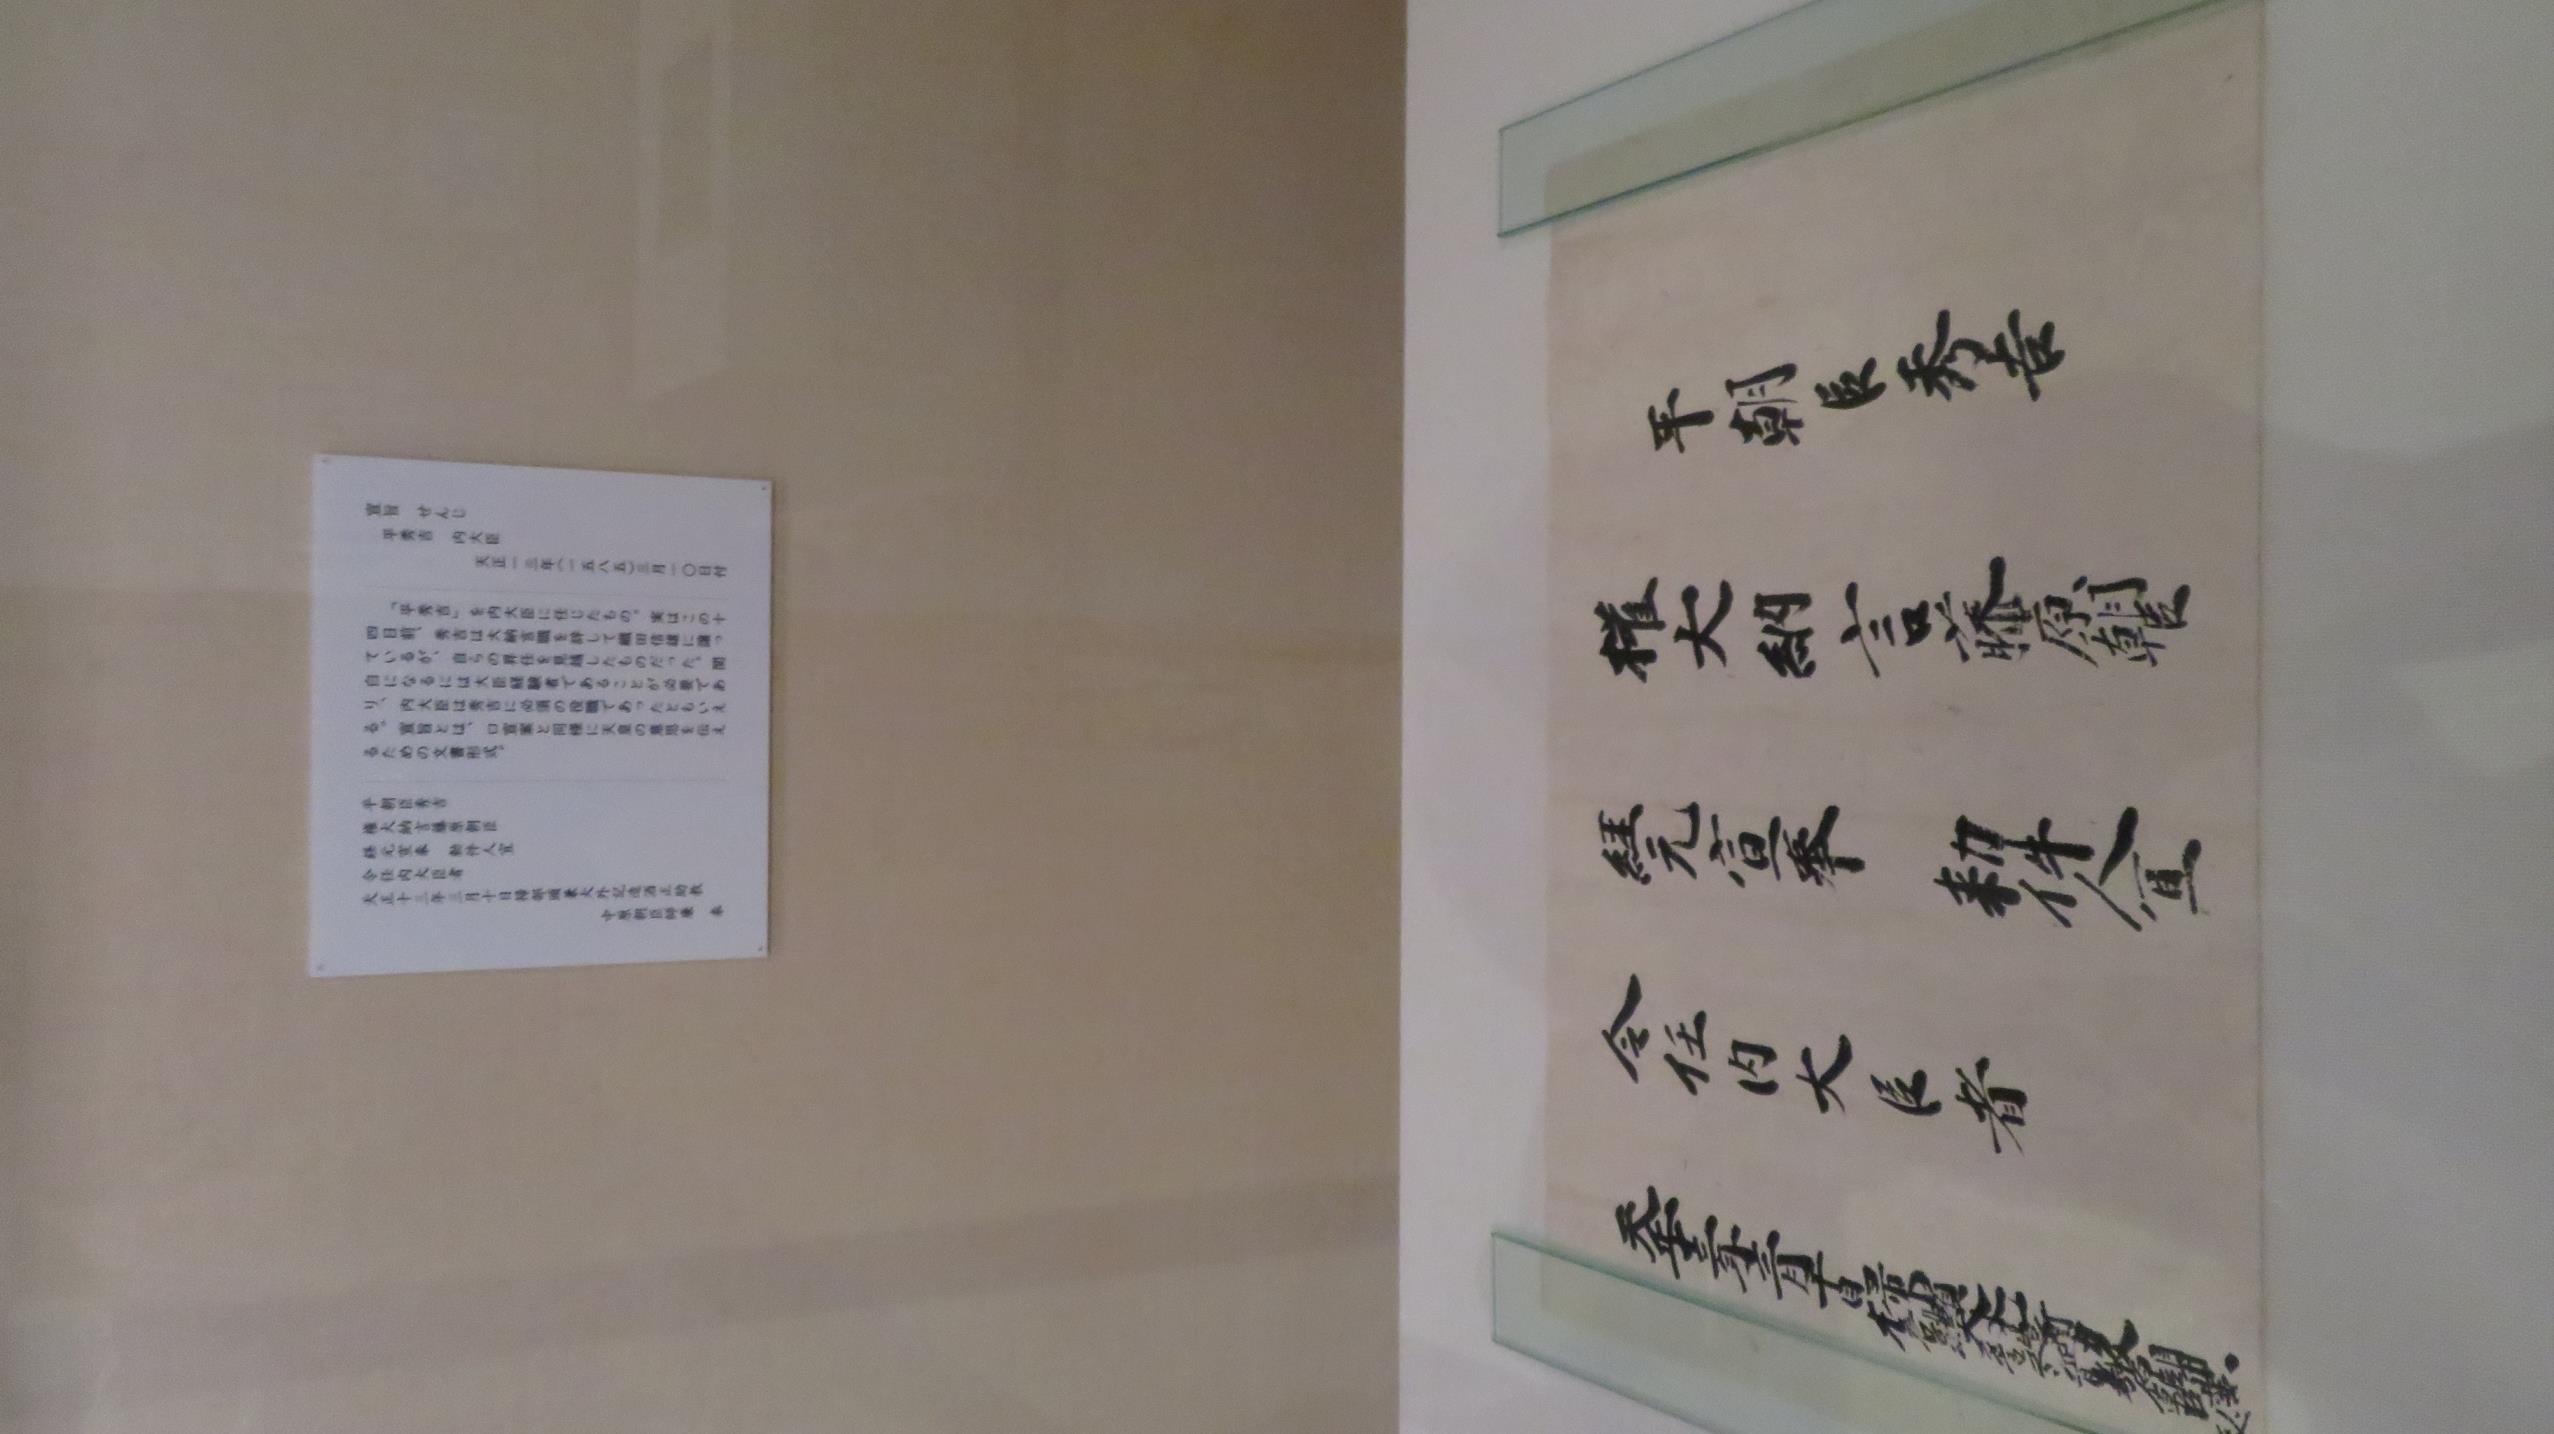 宣旨　せんじ
平秀吉　内大臣
天正一三年(一五八五)三月一〇日付
「平秀吉」を内大臣に任じたもの。実はこの十
四日前、秀吉は大納言職を辞して織田信雄に譲っ
ているが、自らの昇任を見越したものだった。関
白になるには大臣経験者であることが必要であ
り、内大臣は秀吉に必須の役職であったともいえ
る。宣旨とは、口宣案と同様に天皇の意思を伝え
るための文書形式。
平朝臣秀吉
権大納言藤原朝臣
経元宣奉　勅件人宜
令任内大臣者
天正十三年三月十日掃部頭兼大外記造酒正助教
中原朝臣師廉　奉
平朝臣秀吉
権大納言藤原朝臣
経元宣奉　勅件人宜
令任内大臣者
天正十三年三月十日掃部頭兼大外記